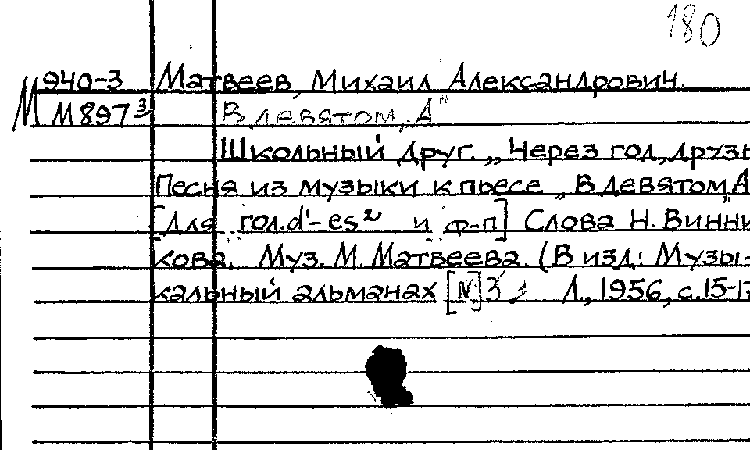 180
940-3 Матвеев, Михаил Александрович.
М М897³ В девятом „А"
Школьный друг. „Через год, друзь
Песня из музыки к пьесе „В девятом „А
[Для гол. d'-es² и ф-п] Слова Н. Винни
кова. Муз. М. Матвеева. (В изд: Музы-
кальный альманах [№] 3, Л., 1956, с. 15-17